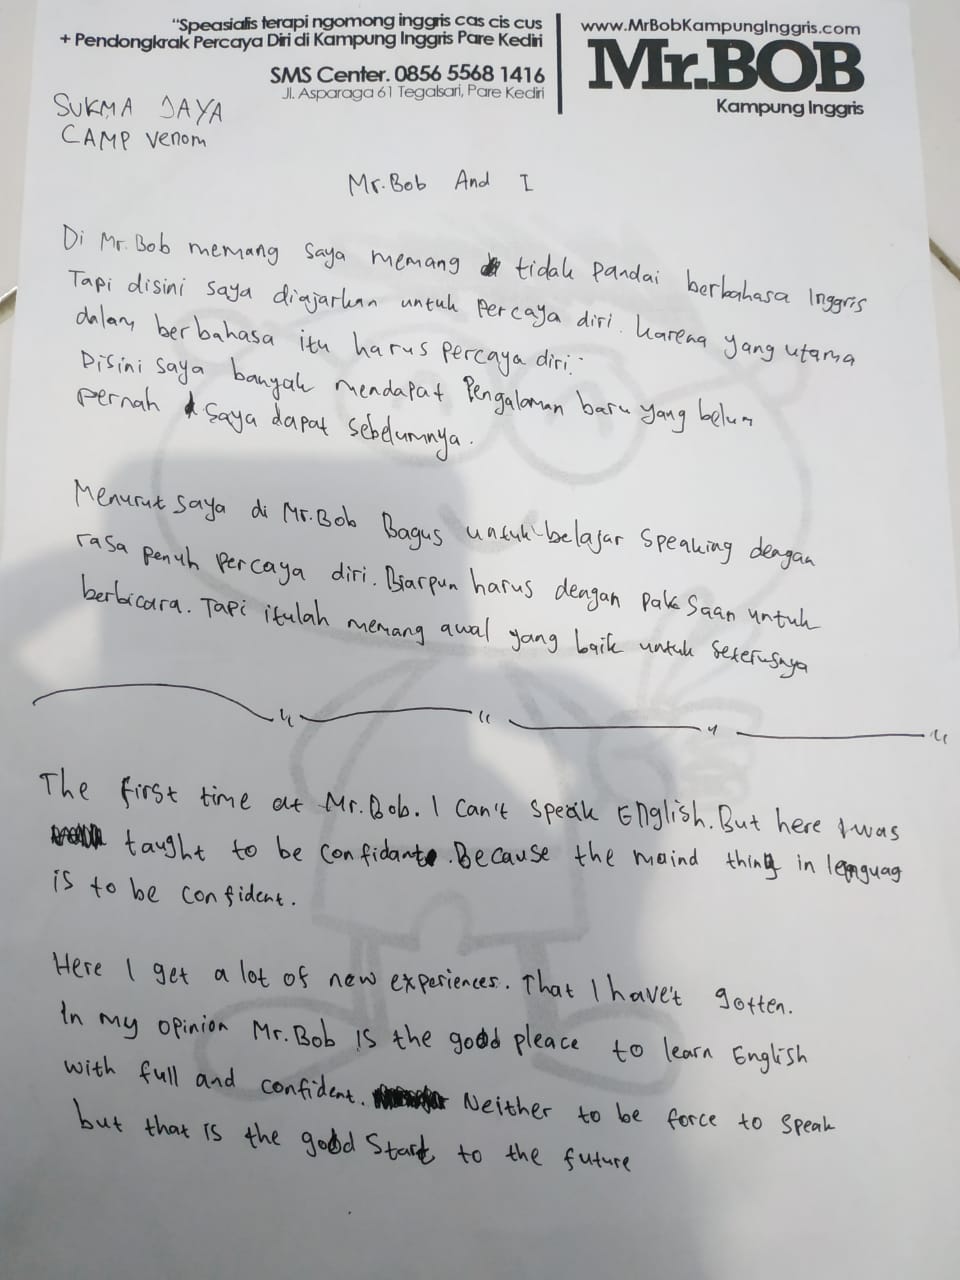 "Speasialis terapi ngomong inggris cas cis cus
+ Pendongkrak Percaya Diri di Kampung Inggris Pare Kediri
SMS Center. 0856 5568 1416
Jl. Asparaga 61 Tegalsari, Pare Kediri
www.MrBobKampungInggris.com
Mr.BOB
Kampung Inggris
SUKMA JAYA
CAMP Venom
Mr.Bob And I
Di Mr.Bob memang saya memang tidak pandai berbahasa Inggris
Tapi disini saya diajarkan untuk percaya diri. karena yang utama
dalam berbahasa itu harus percaya diri.
Disini saya banyak mendapat Pengalaman baru yang belum
pernah saya dapat sebelumnya.
Menurut saya di Mr.Bob Bagus untuk belajar speaking dengan
rasa penuh percaya diri. Biarpun harus dengan pak saan untuk
berbicara. Tapi itulah memang awal yang baik untuk seterusnya
The first time at Mr.Bob. I can't speak English. But here I was
taught to be confidant. Because the maind thing in lenguag
is to be confident.
Here I get a lot of new experiences. That I have't gotten.
In my opinion Mr.Bob is the good pleace to learn English
with full and confident. Neither to be force to speak
but that is the good Start to the future